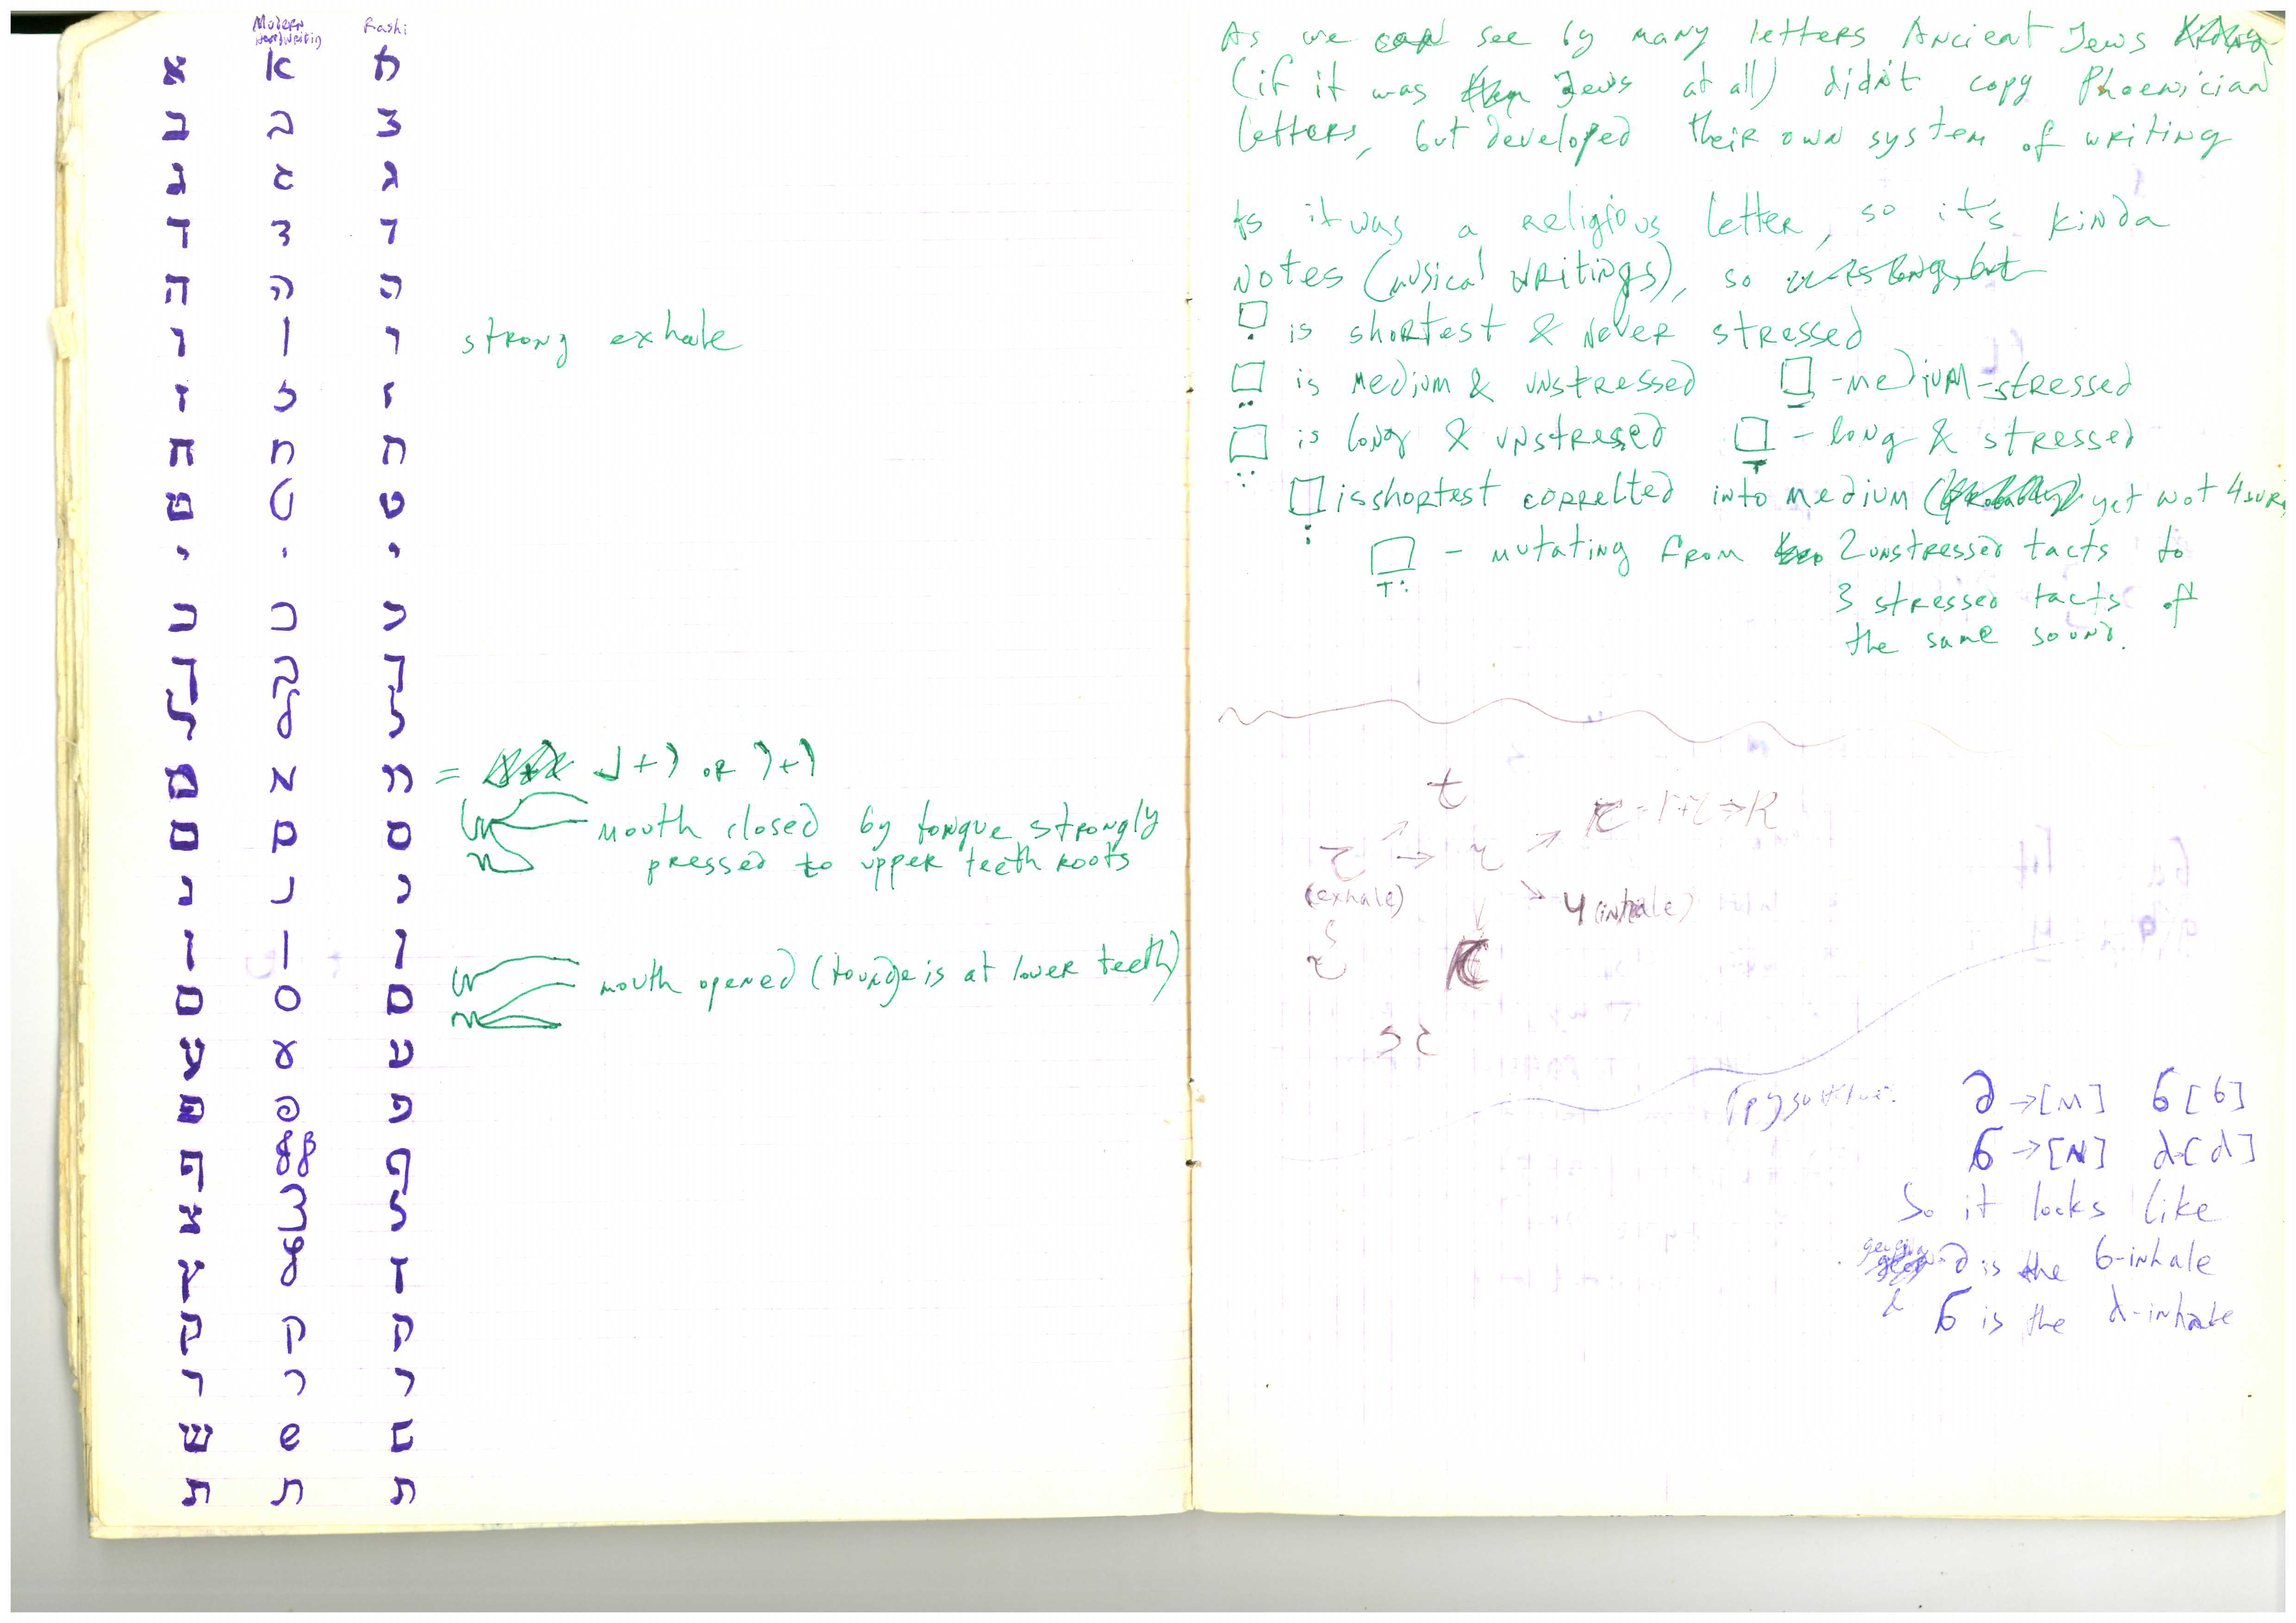 Modern Rashi
Handwritin
א א א
ב ב ב
ג ג ג
ד ד ד
ה ה ה
ו ו ו strong exhale
ז ז ז
ח ח ח
ט ט ט
י י י
כ כ כ
ך ך ך
ל ל ל
מ מ מ =
ם ם ם mouth closed by tongue strongly
pressed to upper teeth roots
נ נ נ
ן ן ן
ס ס ס mouth opened (tounge is at lower teeth)
ע ע ע
פ פ פ
ף ף ף
צ צ צ
ץ ץ ץ
ק ק ק
ר ר ר
ש ש ש
ת ת ת
As we can see by many letters Ancient Jews
(if it was Jews at all) didn't copy Phoenician
letters, but developed their own system of writing
As it was a religious letter, so it's kinda
notes (musical writings), so
is shortest & never stressed
is medium & unstressed - medium - stressed
is long & unstressed - long & stressed
is shortest correlted into medium yet not 4 sure
- mutating from 2 unstressed tacts to
3 stressed tacts of
the same sound.
t
(exhale)
ч (inhale)
∂ → [м] б [б]
ნ → [N] d [d]
So it looks like
∂ is the б-inhale
& ნ is the d-inhale